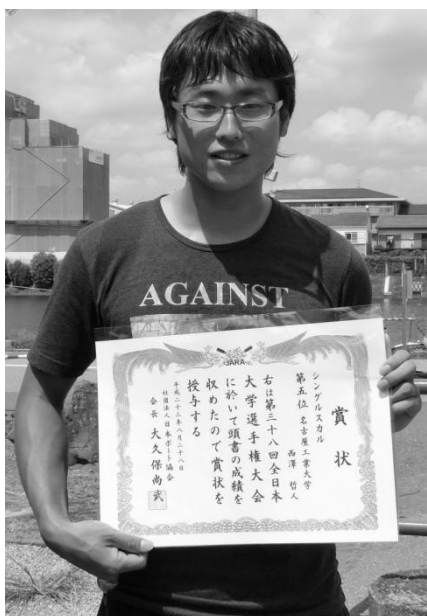 AGAINST
JARA
賞状
シングルスカル
第五位 名古屋工業大学
西澤 哲人
右は第三十八回全日本
大学選手権大会
に於いて頭書の成績を
収めたので賞状を
授与する
平成二十三年八月二十八日
社団法人日本ボート協会
会長 大久保尚武